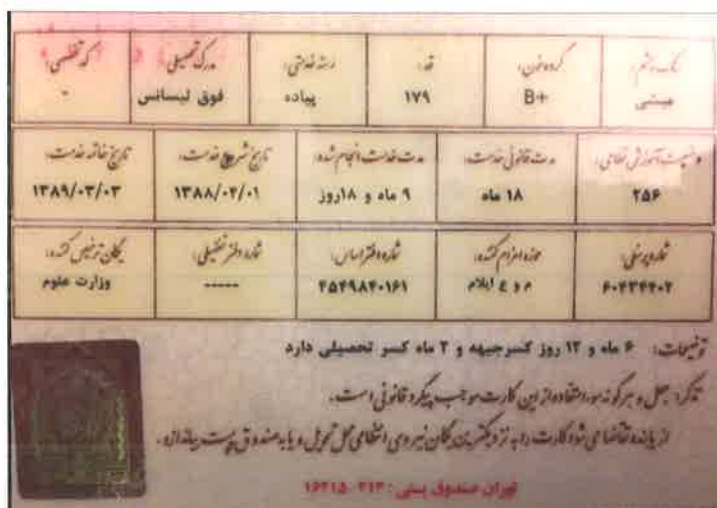 رنگ چشم: گروه خون: قد: رسته خدمتی: مدرک تحصیلی: کد تخصصی:
میشی B+ ۱۷۹ پیاده فوق لیسانس -
وضعیت آموزش نظامی: مدت قانونی خدمت: مدت خدمت انجام شده: تاریخ شروع خدمت: تاریخ خاتمه خدمت:
۲۵۶ ۱۸ ماه ۹ ماه و ۱۸روز ۱۳۸۸/۰۲/۰۱ ۱۳۸۹/۰۳/۰۳
شماره پرسنلی: حوزه اعزام کننده: شماره دفتر اساس: شماره دفتر تفضیلی: یگان ترخیص کننده:
۶۰۴۳۴۴۰۲ م و ع ایلام ۴۵۴۹۸۴۰۱۶۱ ----- وزارت علوم
توضیحات: ۶ ماه و ۱۲ روز کسرجبهه و ۲ ماه کسر تحصیلی دارد
تذکر: جعل و هرگونه سوء استفاده از این کارت موجب پیگرد قانونی است.
از یابنده تقاضا می شود کارت را به نزدیکترین یگان نیروی انتظامی محل تحویل و یا به صندوق پست بیاندازد.
تهران صندوق پستی: ۳۱۳-۱۶۳۱۵